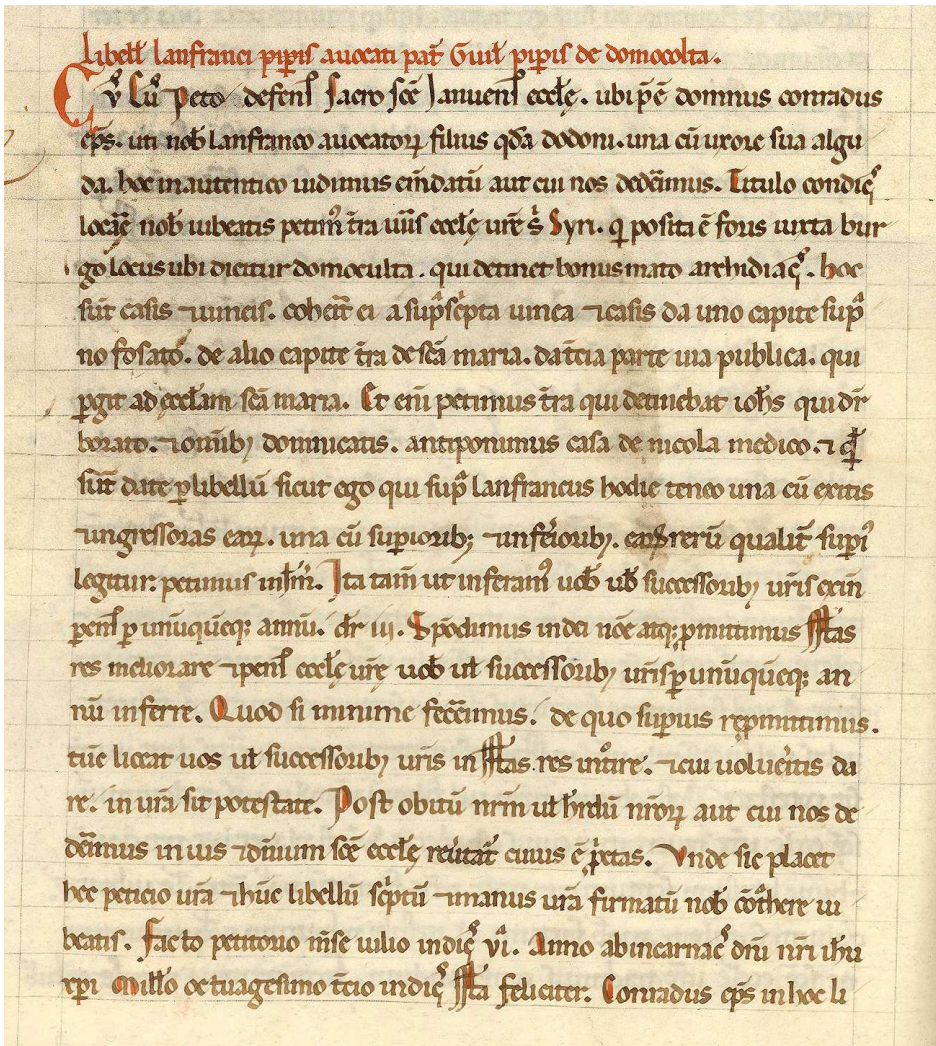 Libell̄ Lanfranci pip̄is auocati pat̄ Guil̄ pip̄is de domocolta.
Cv̊ Lu̅ Peto defens̄ sacro sc̄e Januens̄ eccl̄ę. ubi p̄e̅ domnus conradus
ep̄s. uti nob̄ lanfranco auocatoꝝ filius qd̄a dodoni. una cū uxore sua algu
da. hoc in autentico uidimus em̄datū aut cui nos dedēimus. Titulo condic̨̄
locāc̄ nob̄ iubeatis petim̄ t̄ra iuīs eccl̄ę ur̄ę s̄ Syri. q̇ posita ē foris iuxta bur
go locus ubi dicitur domoculta. qui detinet bonus mato archidiac̨̄. hoc
sūt casis ⁊ uineis. coher̄t ei a sup̄sc̄pta uinea ⁊ casis da uno capite sup̄
no fosato. de alio capite t̄ra de sc̄a maria. dat̄cia parte uia publica. qui
ꝑgit ad eccl̄am sc̄a maria. Et enī petimus t̄ra qui detinebat ioh̄s qui dr̄
borato. ⁊ omīb; domnicatis. antiponimus casa de nicola medico. ⁊ q̄
sūt date ꝑ libellū sicut ego qui sup̄ lanfrancus hodie teneo una cū exitis
⁊ ingressoras eaꝝ. una cū supioriб; ⁊ inf̄eiorib;. eaꝝ rerū qualit̄ supi̇
legitur: petimus in īm̄. Ita tam̄ ut inferam̄ uob̄ ul̄ successorib; ur̄is exin̄
pens̄ ꝑ unūquēq; annū. dr̄ iii. Spōdimus in dei nōe atq; ꝑmittimus īstas
res meliorare ⁊ pens̄ eccl̄ę ur̄ę uob̄ ul̄ successorib; ur̄is ꝑ unūquēq; an
nū inferre. Quod si minime fec̄eimus. de quo supius rep̄mittimus.
tūc liceat uos ul̄ successorib; ur̄is in īstas res int̄oire. ⁊ cui uolūeitis da
re. in ur̄a sit potestate. Post obitū nr̄m ul̄ h̄rdū nr̄oꝝ aut cui nos de
dēimus in iuis ⁊ dn̄ium sc̄e eccl̄ę reūtat̄ cuius ē p̄etas. Vnde sic placet
hec peticio ur̄a ⁊ hūc libellū sc̄ptū ⁊ manus ur̄a firmatū nob̄ cōt̄here iu
beatis. Facto petitorio m̄se iulio indic̨̄ vi̇. Anno ab incarnac̄ dn̄i nr̄i ih̄u
xp̄i Mill̄o octuagesimo t̄cio indic̨̄ īsta feliciter. Conradus ep̄s in hoc li